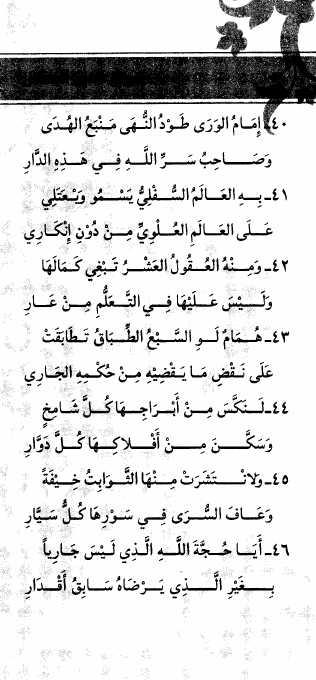 ٤٠ـ إِمَامُ الوَرَى طَوْدُ النُّهَى مَنْبَعُ الهُدَى
وَصَاحِبُ سَرِّ اللَّهِ فِي هَذِهِ الدَّارِ
٤١ـ بِهِ العَالَمُ السُّفْلِيُّ يَسْمُو وَيَعْتَلِي
عَلَى العَالَمِ العُلْوِيِّ مِنْ دُوْنِ إِنْكَارِي
٤٢ـ وَمِنْهُ العُقُولُ العَشْرُ تَبْغِي كَمَالَهَا
وَلَيْسَ عَلَيْهَا فِي التَّعَلُّمِ مِنْ عَارِ
٤٣ـ هُمَامٌ لَوِ السَّبْعُ الطِّبَاقُ تَطَابَقَتْ
عَلَى نَقْضِ مَا يَقْضِيْهِ مِنْ حُكْمِهِ الجَارِي
٤٤ـ لَنَكَّسَ مِنْ أَبْرَاجِهَا كُلَّ شَامِخٍ
وَسَكَّنَ مِنْ أَفْلَاكِهَا كُلَّ دَوَّارِ
٤٥ـ وَلَانْتَشَرَتْ مِنْهَا الثَّوَابِتُ خِيْفَةً
وَعَافَ السُّرَى فِي سَوْرِهَا كُلُّ سَيَّارِ
٤٦ـ أَيَا حُجَّةَ اللَّهِ الَّذِي لَيْسَ جَارِياً
بِغَيْرِ الَّذِي يَرْضَاهُ سَابِقُ أَقْدَارِ